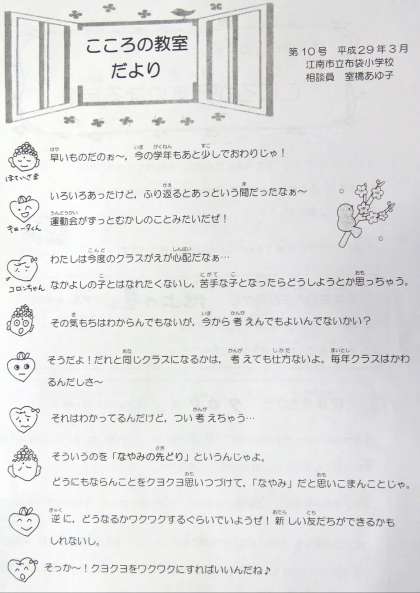 こころの教室
だより
第10号 平成29年3月
江南市立布袋小学校
相談員 室橋あゆ子
早いものだのぉ〜，今の学年もあと少しでおわりじゃ！
ほていさま
いろいろあったけど，ふり返るとあっという間だったなぁ〜
運動会がずっとむかしのことみたいだぜ！
キョータくん
わたしは今度のクラスがえが心配だなぁ…
なかよしの子とはなれたくないし，苦手な子となったらどうしようとか思っちゃう。
コロンちゃん
その気もちはわからんでもないが，今から考えんでもよいんでないかい？
そうだよ！だれと同じクラスになるかは，考えても仕方ないよ，毎年クラスはかわ
るんだしさ〜
それはわかってるんだけど，つい考えちゃう…
そういうのを「なやみの先どり」というんじゃよ。
どうにもならんことをクヨクヨ思いつづけて，「なやみ」だと思いこまんことじゃ。
逆に，どうなるかワクワクするぐらいでいようぜ！新しい友だちができるかも
しれないし。
そっか〜！クヨクヨをワクワクにすればいいんだね♪